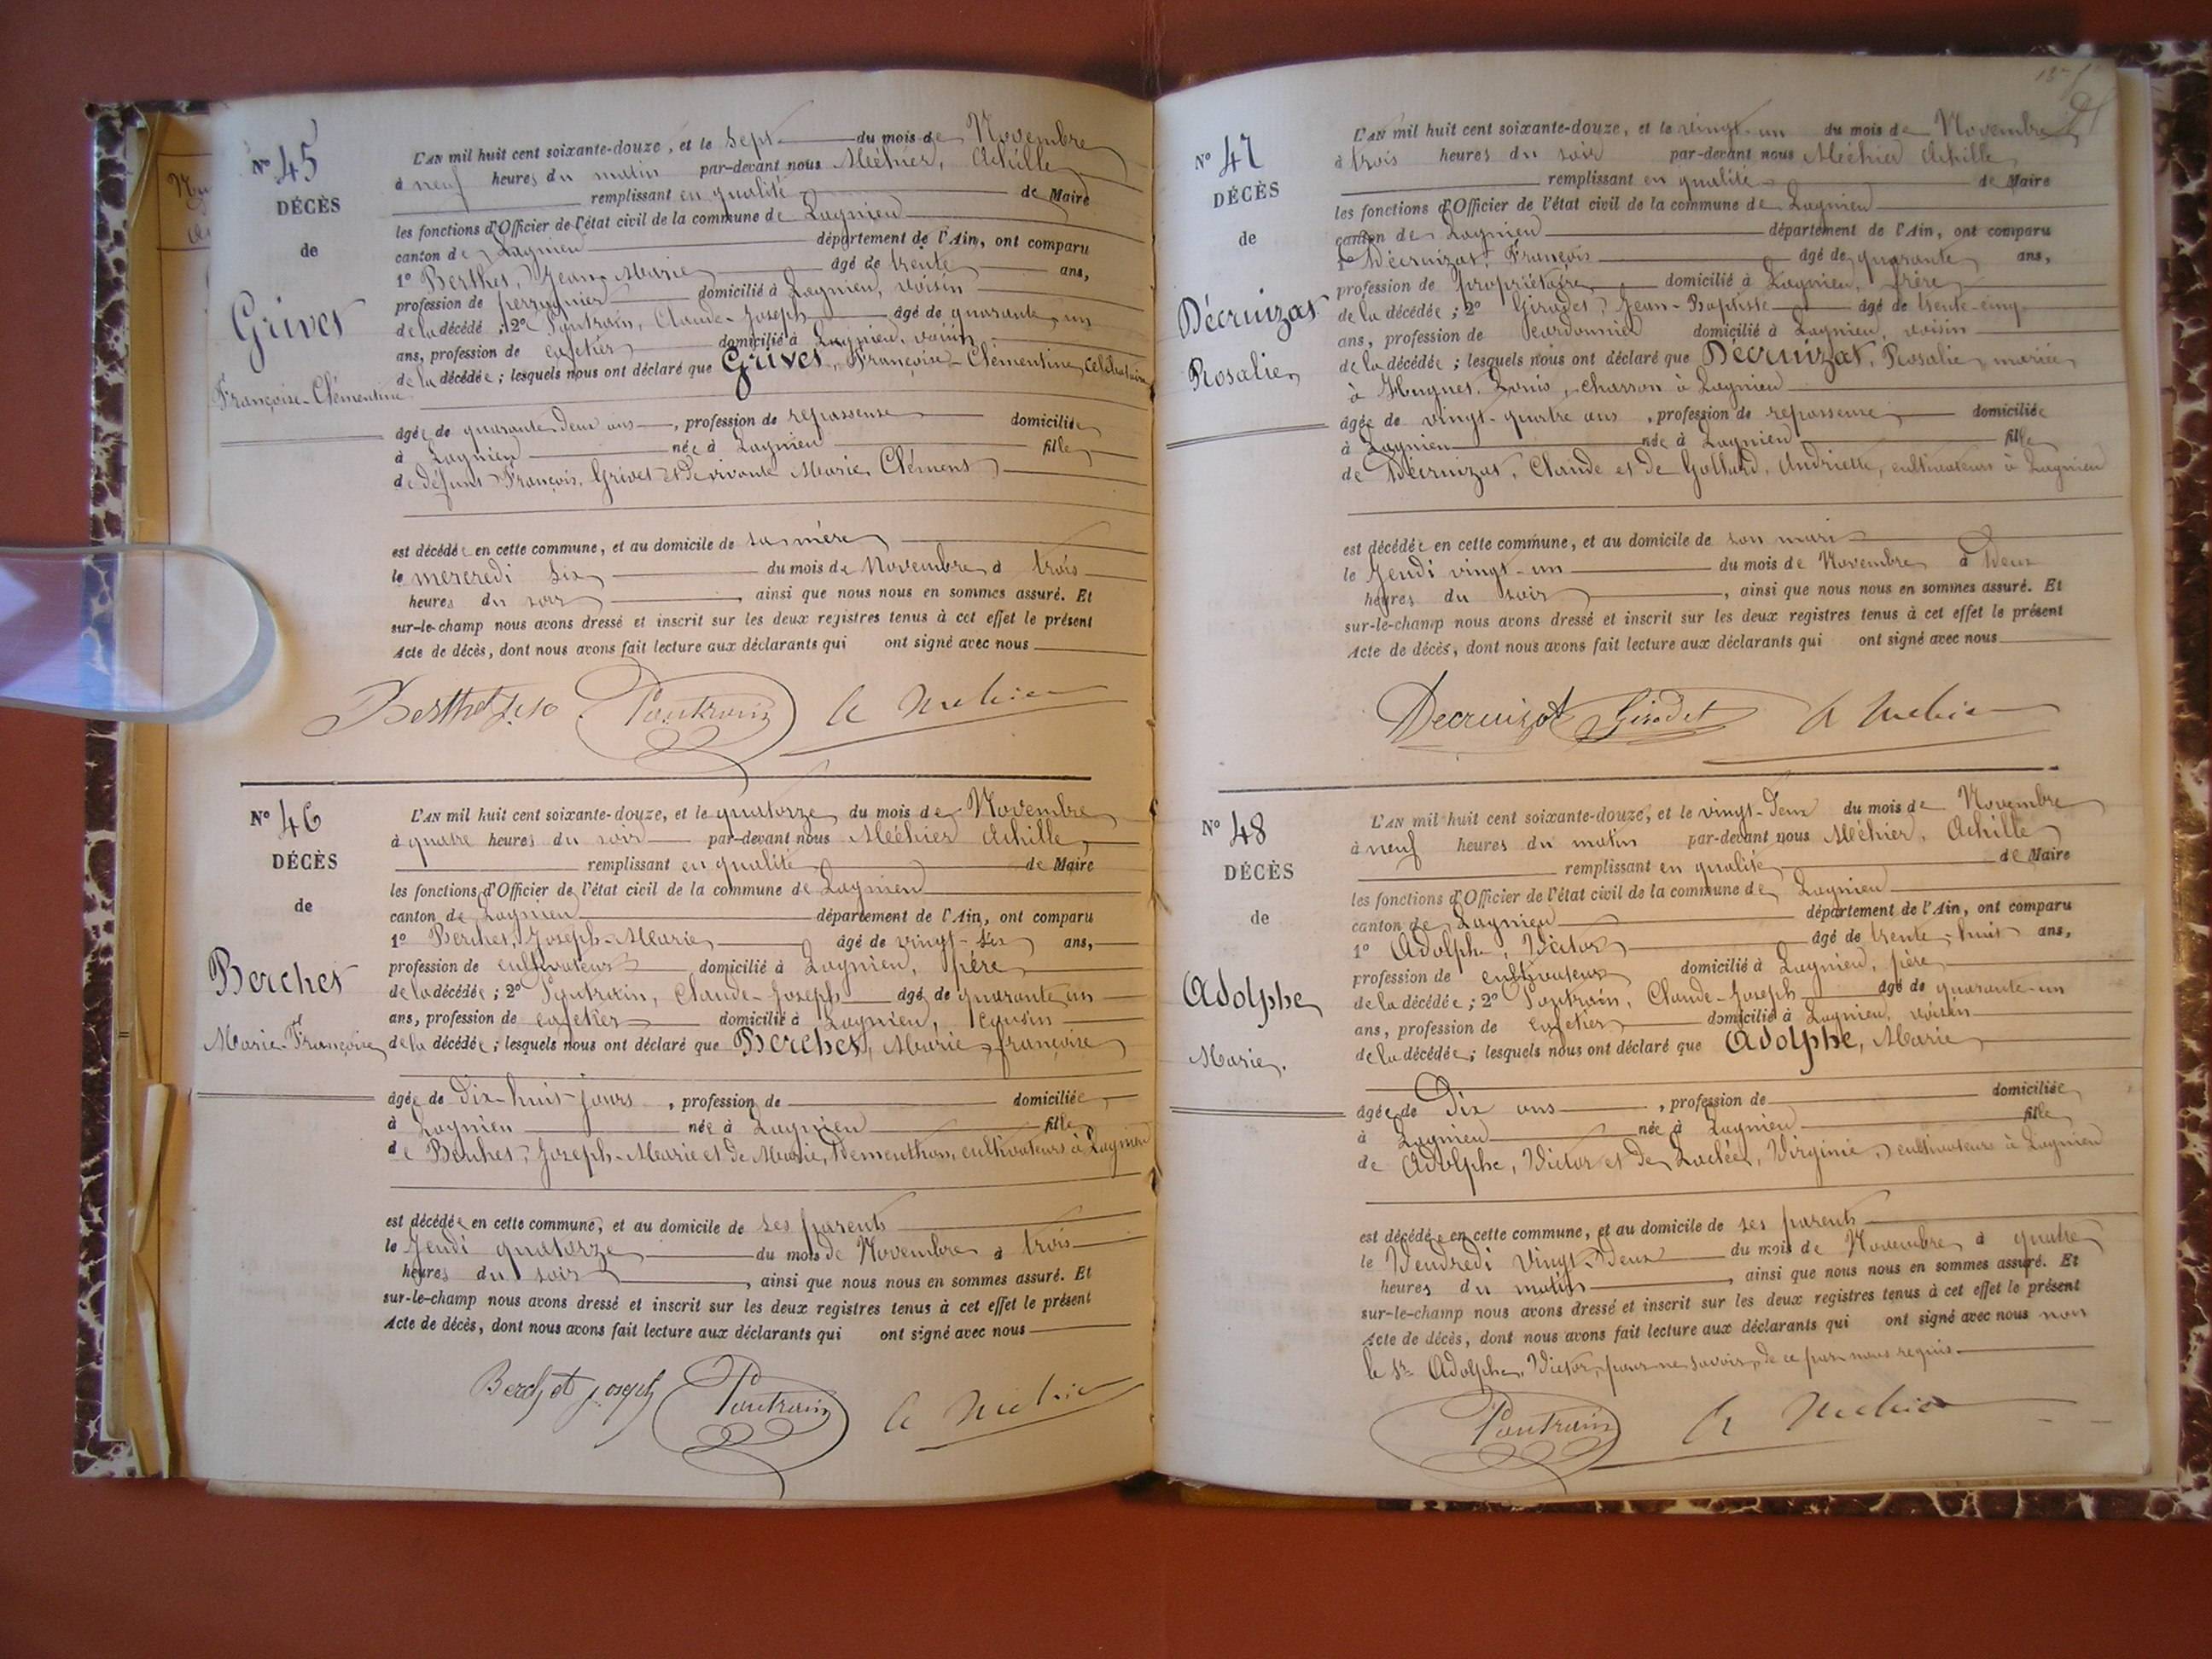 N° 45
DÉCÈS
de
Grivet
Françoise-Clémentine
L'AN mil huit cent soixante-douze, et le sept du mois de Novembre
à neuf heures du matin par-devant nous Méchier, Achille
remplissant en qualité de Maire
les fonctions d'Officier de l'état civil de la commune de Lagnieu
canton de Lagnieu département de l'Ain, ont comparu
1° Berthet, Jean-Marie âgé de trente ans,
profession de perruquier domicilié à Lagnieu, voisin
de la décédé ; 2° Pontrain, Claude-Joseph âgé de quarante-un
ans, profession de cafetier domicilié à Lagnieu, voisin
de la décédée ; lesquels nous ont déclaré que Grivet, Françoise-Clémentine, célibataire
âgée de quarante-deux ans, profession de repasseuse domiciliée
à Lagnieu née à Lagnieu fille
de défunt François Grivet et de vivante Marie Clémens
est décédée en cette commune, et au domicile de sa mère
le mercredi six du mois de Novembre à trois
heures du soir, ainsi que nous nous en sommes assuré. Et
sur-le-champ nous avons dressé et inscrit sur les deux registres tenus à cet effet le présent
Acte de décès, dont nous avons fait lecture aux déclarants qui ont signé avec nous
Berthet Pontrain A Méchier
N° 46
DÉCÈS
de
Berchet
Marie-Françoise
L'AN mil huit cent soixante-douze, et le quatorze du mois de Novembre
à quatre heures du soir par-devant nous Méchier Achille
remplissant en qualité de Maire
les fonctions d'Officier de l'état civil de la commune de Lagnieu
canton de Lagnieu département de l'Ain, ont comparu
1° Berchet, Joseph-Marie âgé de vingt-six ans,
profession de cultivateur domicilié à Lagnieu, père
de la décédée ; 2° Pontrain, Claude-Joseph âgé de quarante-un
ans, profession de cafetier domicilié à Lagnieu, cousin
de la décédée ; lesquels nous ont déclaré que Berchet, Marie-françoise
âgée de dix-huit jours, profession de domiciliée
à Lagnieu née à Lagnieu fille
de Berchet, Joseph-Marie et de Marie, Dementhon, cultivateurs à Lagnieu
est décédée en cette commune, et au domicile de ses parents
le Jeudi quatorze du mois de Novembre à trois
heures du soir, ainsi que nous nous en sommes assuré. Et
sur-le-champ nous avons dressé et inscrit sur les deux registres tenus à cet effet le présent
Acte de décès, dont nous avons fait lecture aux déclarants qui ont signé avec nous
Berchet joseph Pontrain A Méchier
N° 47
DÉCÈS
de
Décruizat
Rosalie
L'AN mil huit cent soixante-douze, et le vingt-un du mois de Novembre
à trois heures du soir par-devant nous Méchier Achille
remplissant en qualité de Maire
les fonctions d'Officier de l'état civil de la commune de Lagnieu
canton de Lagnieu département de l'Ain, ont comparu
1° Décruizat, François âgé de quarante ans,
profession de propriétaire domicilié à Lagnieu, frère
de la décédée ; 2° Girodet, Jean-Baptiste âgé de trente-cinq
ans, profession de cordonnier domicilié à Lagnieu, voisin
de la décédée ; lesquels nous ont déclaré que Décruizat, Rosalie, mariée
à Hugues, Louis, charron à Lagnieu
âgée de vingt-quatre ans, profession de repasseuse domiciliée
à Lagnieu née à Lagnieu fille
de Décruizat, Claude et de Andriette, cultivateurs à Lagnieu
est décédée en cette commune, et au domicile de son mari
le Jeudi vingt-un du mois de Novembre à deux
heures du soir, ainsi que nous nous en sommes assuré. Et
sur-le-champ nous avons dressé et inscrit sur les deux registres tenus à cet effet le présent
Acte de décès, dont nous avons fait lecture aux déclarants qui ont signé avec nous
Decruizat Girodet A Méchier
N° 48
DÉCÈS
de
Adolphe
Marie
L'AN mil huit cent soixante-douze, et le vingt-deux du mois de Novembre
à neuf heures du matin par-devant nous Méchier, Achille
remplissant en qualité de Maire
les fonctions d'Officier de l'état civil de la commune de Lagnieu
canton de Lagnieu département de l'Ain, ont comparu
1° Adolphe, Victor âgé de trente-huit ans,
profession de cultivateur domicilié à Lagnieu, père
de la décédée ; 2° Pontrain, Claude-Joseph âgé de quarante-un
ans, profession de cafetier domicilié à Lagnieu, voisin
de la décédée ; lesquels nous ont déclaré que Adolphe, Marie
âgée de Dix ans, profession de domiciliée
à Lagnieu née à Lagnieu fille
de Adolphe, Victor et de Virginie, cultivateurs à Lagnieu
est décédée en cette commune, et au domicile de ses parents
le Vendredi vingt-deux du mois de Novembre à quatre
heures du matin, ainsi que nous nous en sommes assuré. Et
sur-le-champ nous avons dressé et inscrit sur les deux registres tenus à cet effet le présent
Acte de décès, dont nous avons fait lecture aux déclarants qui ont signé avec nous non
le Sr Adolphe, Victor, pour ne savoir, de ce par nous requis
Pontrain A Méchier